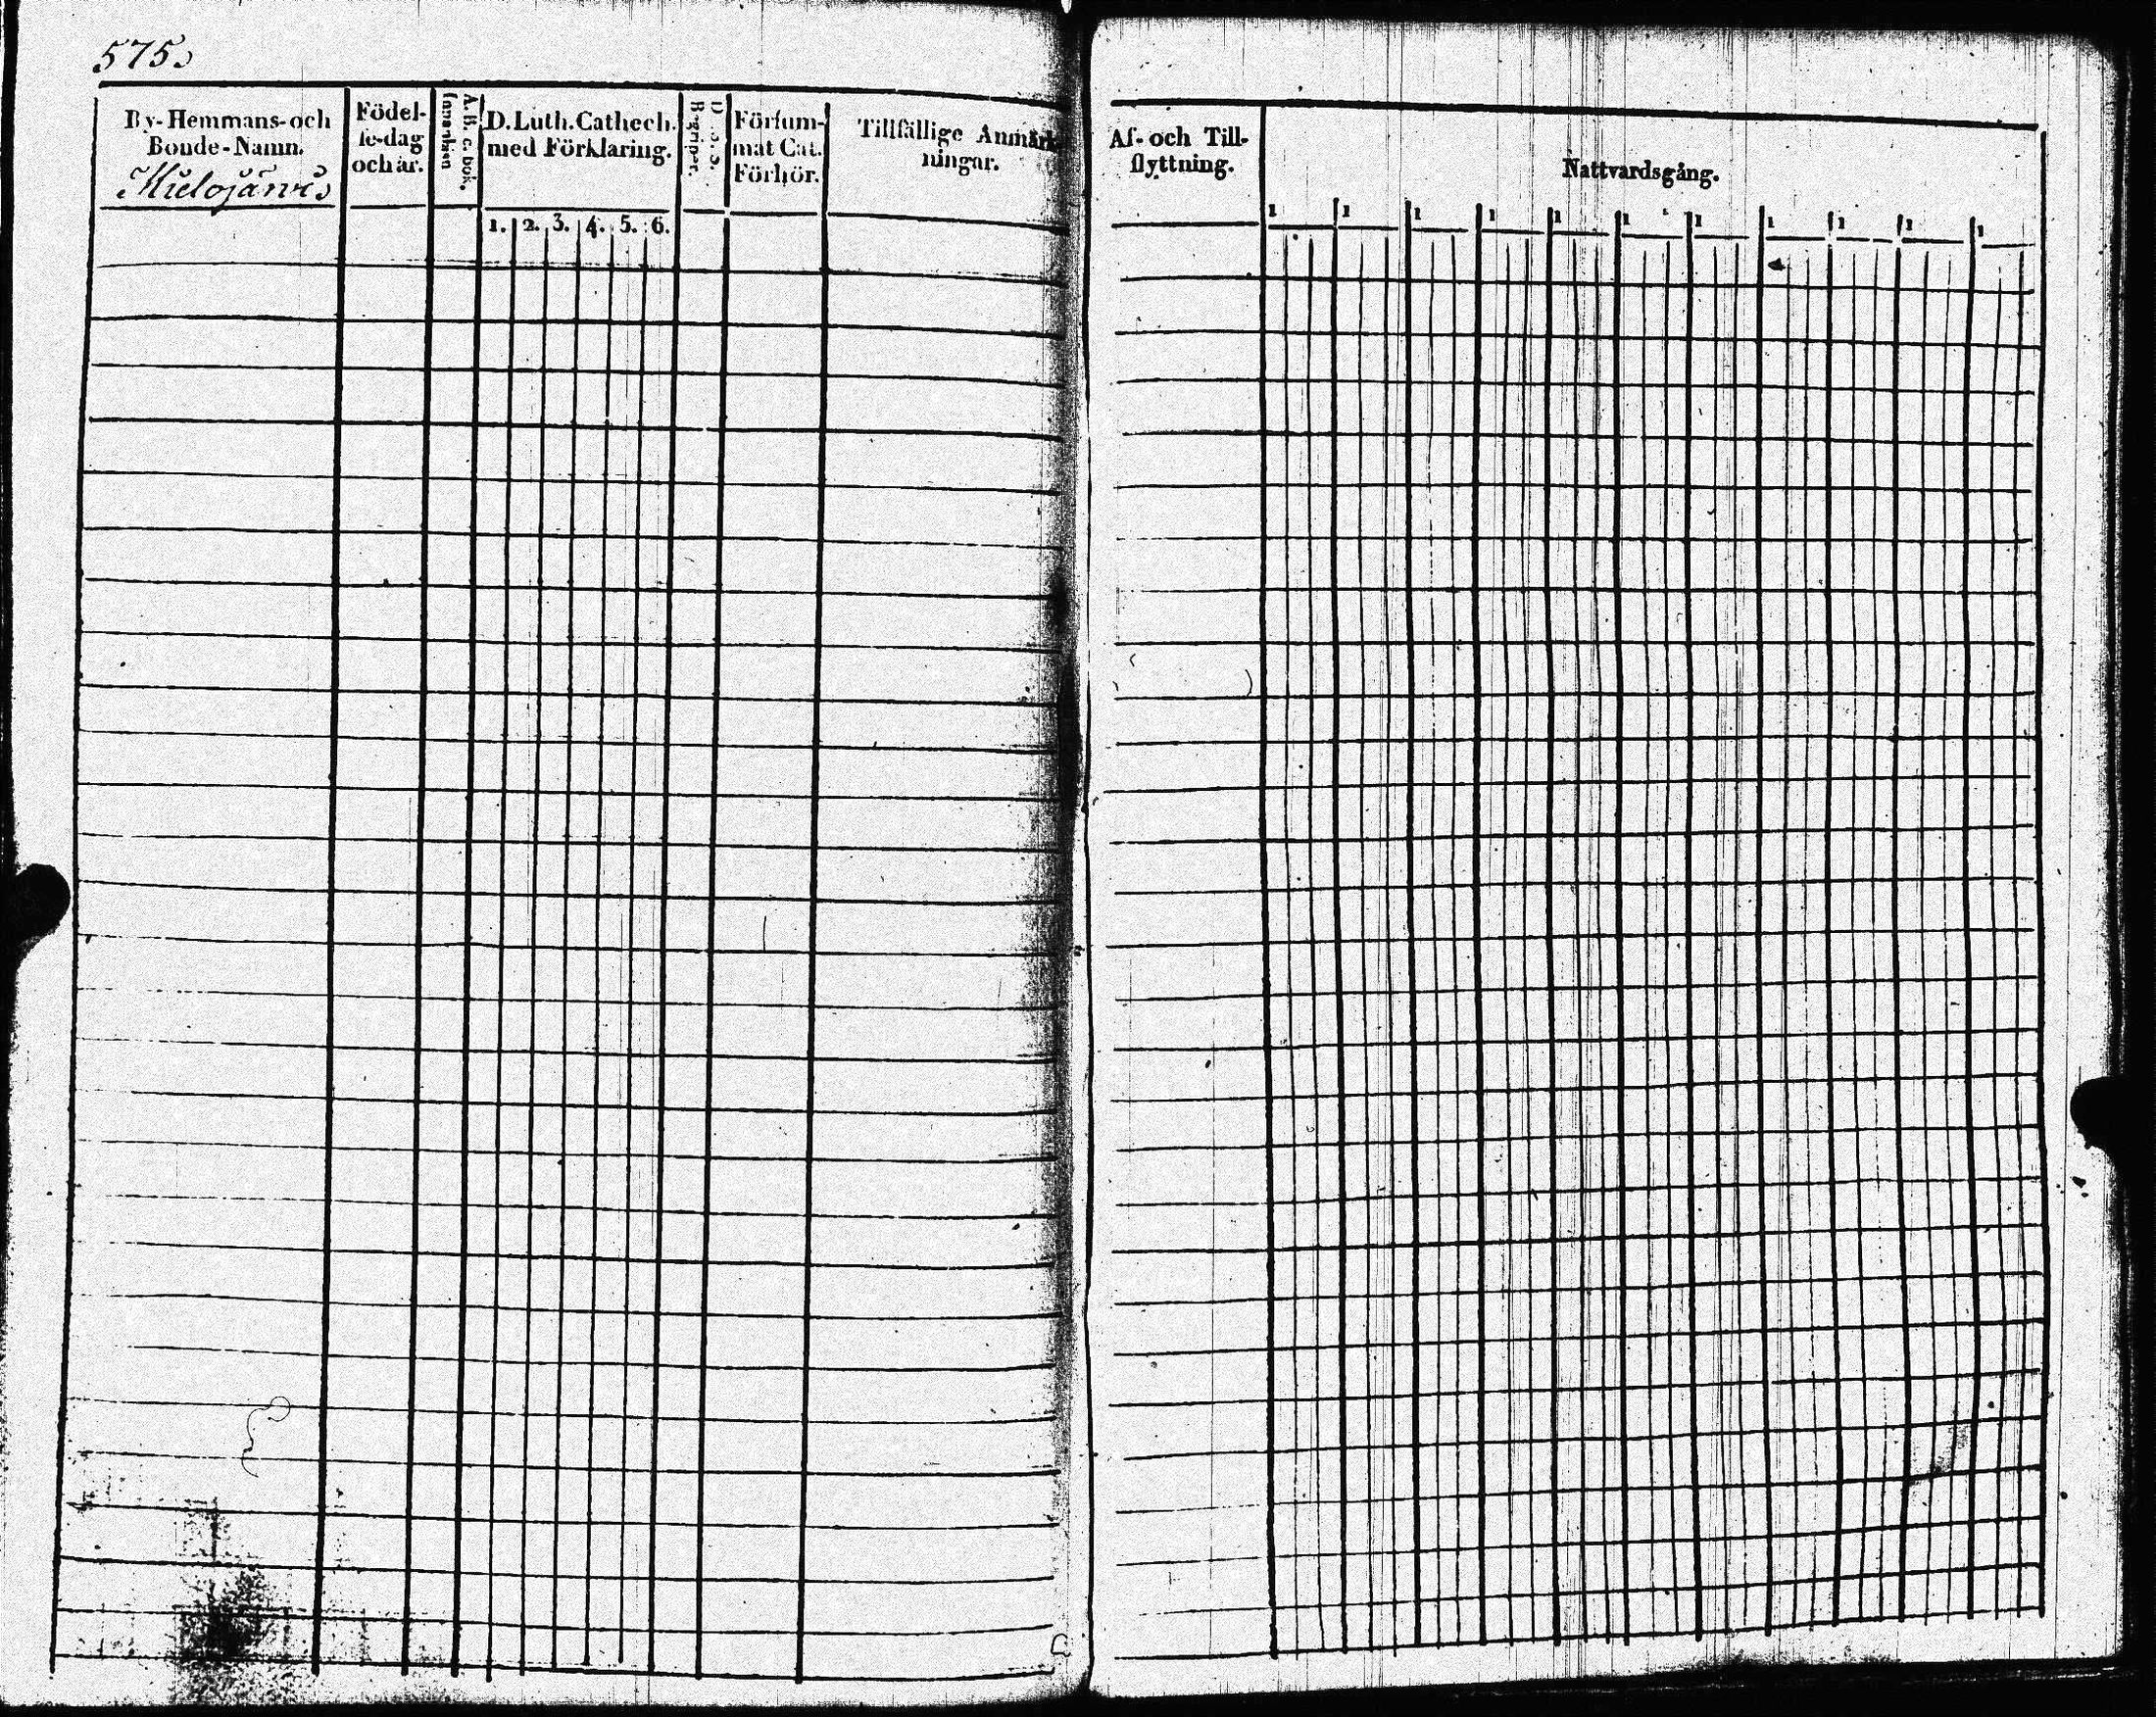 575.
By-Hemmans-och
Bonde-Namn.
Födel-
se-dag
och år.
A. B. c. bok.
Innantien
D. Luth. Cathech.
med Förklaring.
Begriper.
Försum-
mat Cat.
Förhör.
Tillfällige Anmärk-
ningar.
1. 2. 3. 4. 5. 6.
Af- och Till-
flyttning.
Nattvardsgång.
1 1 1 1 1 1 1 1 1 1 1